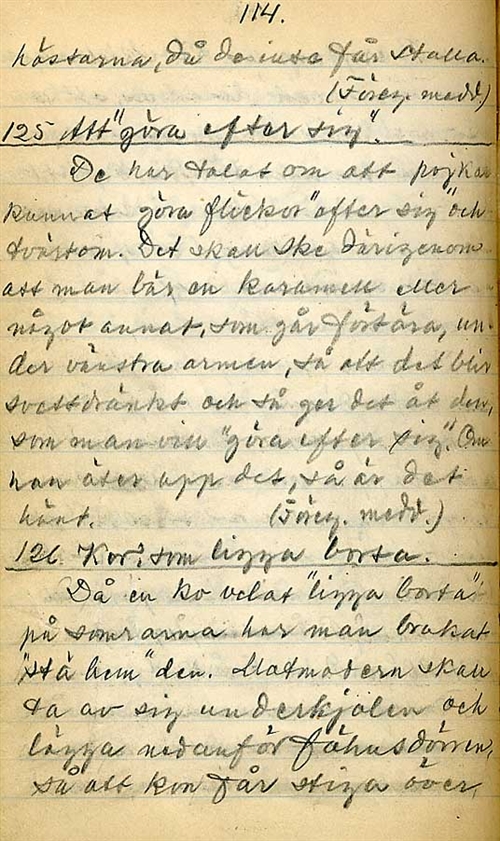 114.
hästarna, då de inte får stalla.
(Föreg. medd.)
125 Att "göra efter sig".
De har talat om att pojkar
kunnat göra flickor "efter sig" och
tvärtom. Det skall ske därigenom
att man bär en karamell eller
något annat, som går förtära, un-
der vänstra armen, så att det blir
svettdränkt och så ger det åt den,
som man vill "göra efter sig". Om
han äter upp det, så är det
hänt. (Föreg. medd.)
126 Kor, som ligga borta.
Då en ko velat "ligga borta"
på somrarna har man brukat
"stä hem" den. Matmodern skall
ta av sig underkjolen och
lägga nedanför fähusdörren,
så att kon får stiga över,